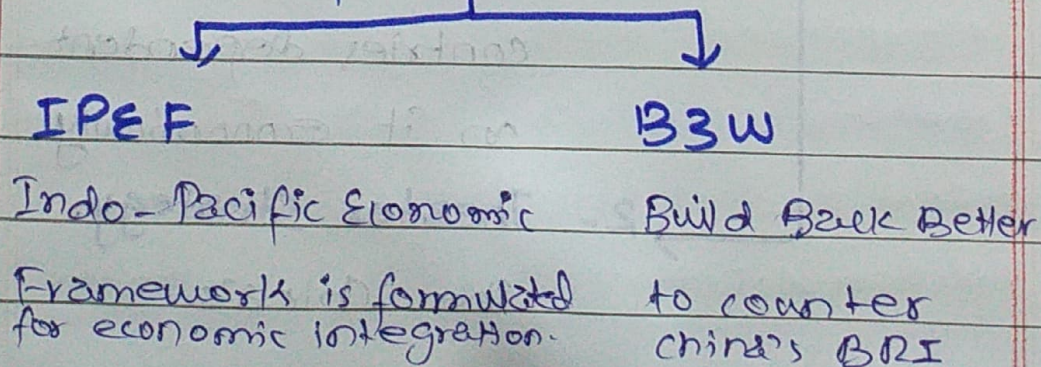 IPEF
Indo-Pacific Economic
Framework is formulated
for economic integration.
B3W
Build Back Better
to counter
China's BRI